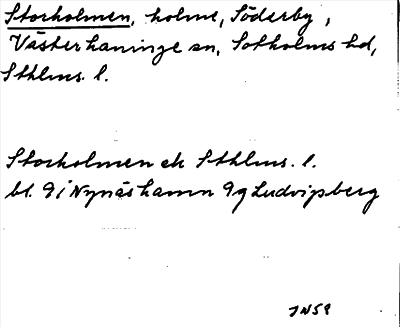 Storholmen, holme, Söderby,
Västerhaninge sn, Sotholms hd,
Sthlms l.
Storholmen ek Sthlms. l.
bl. 9i Nynäshamn 9g Ludvigsberg
JN59